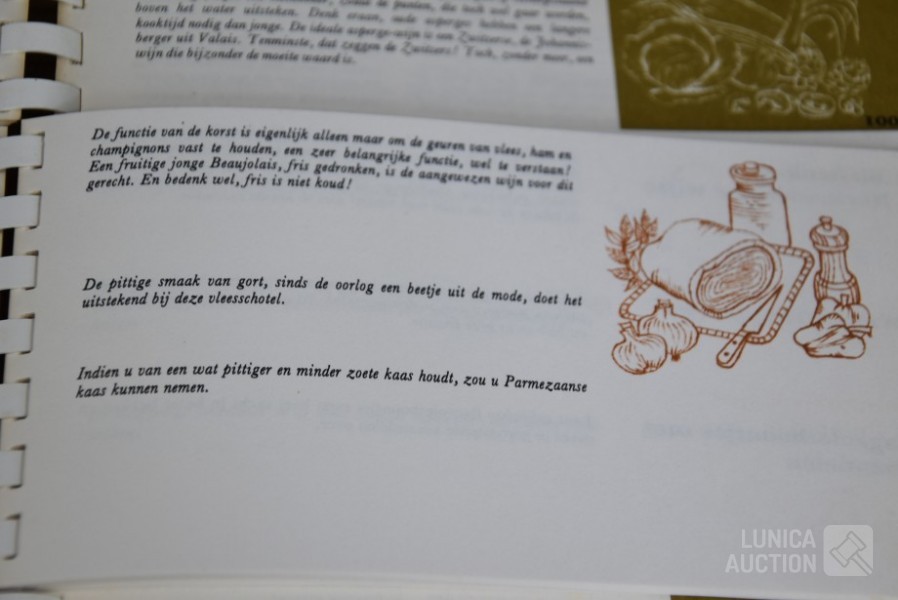 boven het water uitsteken. Denk eraan, oude asperges hebben een langere
kooktijd nodig dan jonge. De ideale asperge-wijn is een Zwitserse, de Johannis-
berger uit Valais. Tenminste, dat zeggen de Zwitsers! Toch, zonder meer, een
wijn die bijzonder de moeite waard is.
100
De functie van de korst is eigenlijk alleen maar om de geuren van vlees, ham en
champignons vast te houden, een zeer belangrijke functie, wel te verstaan!
Een fruitige jonge Beaujolais, fris gedronken, is de aangewezen wijn voor dit
gerecht. En bedenk wel, fris is niet koud!
De pittige smaak van gort, sinds de oorlog een beetje uit de mode, doet het
uitstekend bij deze vleesschotel.
Indien u van een wat pittiger en minder zoete kaas houdt, zou u Parmezaanse
kaas kunnen nemen.
LUNICA
AUCTION